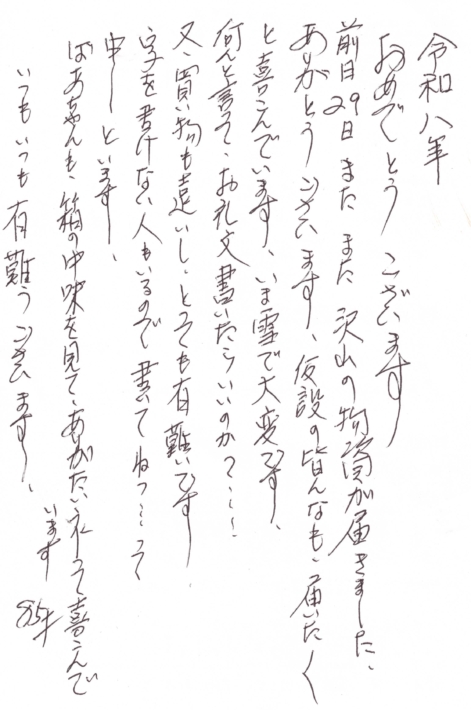 令和八年
おめでとう ございます
前日29日 また また 沢山の物資が届きました、
ありがとう ございます、仮設の皆んなも、届いた〱
と喜こんでいます、いま雪で大変です、
何んと言って、お礼文書いたらいいのか?……
又、買い物も遠いし、とっても有難いです
字を書けない人もいるので 書いてねっ…って
申し といます、
ばあちゃんも、箱の中味を見て、ありがたいネって喜こんで
います 85才
いつも いつも 有難う ございます、